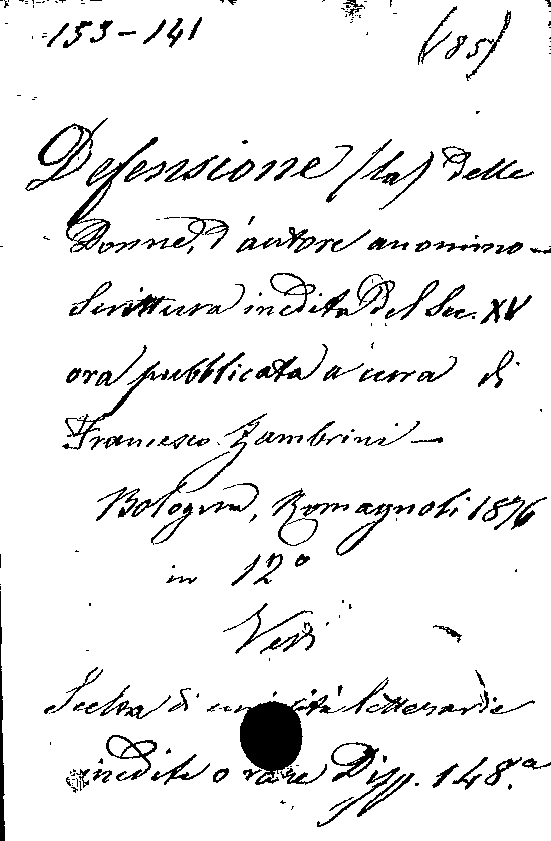 153-141 (185)
Defensione (la) delle
Donne, d'autore anonimo -
Scrittura inedita del Sec. XV
ora pubblicata a cura di
Francesco Zambrini -
Bologna, Romagnoli 1876
in 12°
Vedi
Scelta di curiosità letterarie
inedite o rare Disp. 148.a